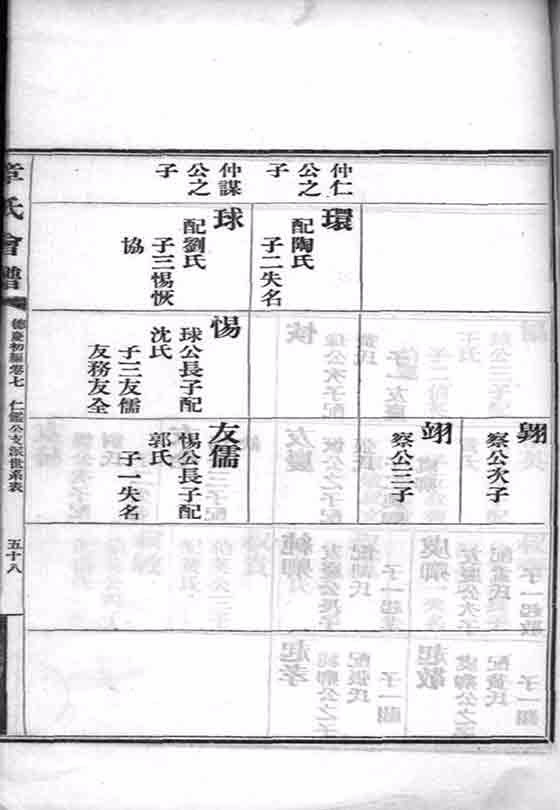 仲仁
公之
子
環
配陶氏
子二失名
仲謀
公之
子
球
配劉氏
子三惕恢
協
惕
球公長子配
沈氏
子三友儒
友務友全
察公次子
翊
察公三子
友儒
惕公長子配
郭氏
子一失名
章氏會譜
德慶初編卷七
仁鑑公支派世系表
五十八